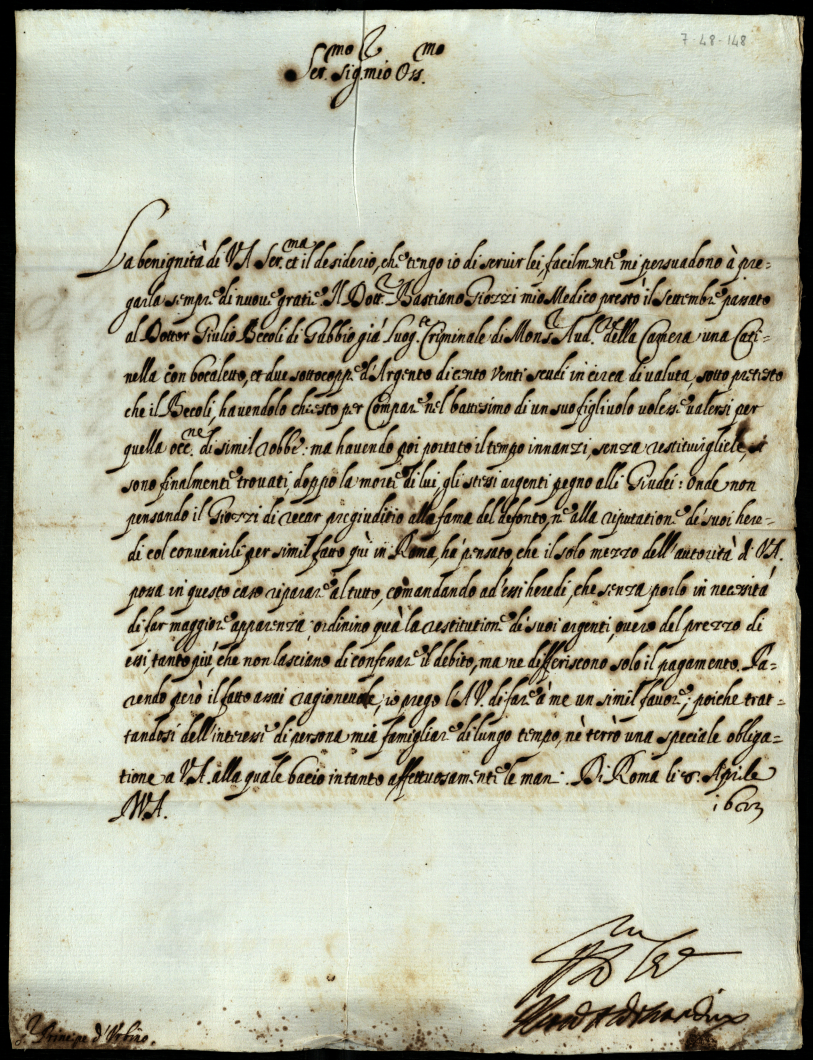 7-48-148
Ser.mo Sig.r mio Oss.mo
La benignità di V A Ser.ma et il desiderio, che tengo io di servir lei, facilmente mi persuadono à pre=
garla sempre di nuove gratie. Il Dott.r Bastiano mio Medico prestò il Settembre passato
al Dottor Giulio Beccoli di Gubbio già Luog.te Criminale di Mons.r Aud.re della Camera una Cati=
nella con bocaletto, et due sottocoppe d'Argento di cento venti scudi in circa di valuta, sotto pretesto
che il Beccoli, havendolo chiesto per Compare nel battesimo di un suo figlivolo volesse valersi per
quella occ.ne di simil robbe: ma havendo poi portato il tempo innanzi, senza restituirgliele, si
sono finalmente trovati, doppo la morte di lui, gli stessi argenti pegno alli Giudei: onde non
pensando il di recar pregiuditio alla fama del defonto, ne alla riputatione de' suoi here=
di col convenirli per simil fatto quì in Roma, hà pensato, che il solo mezzo dell'autorità di V A.
possa in questo caso riparare al tutto, comandando ad essi heredi, che senza porlo in necessità
di far maggiore apparenza, ordinino quà la restitutione de' suoi argenti, overo del prezzo di
essi, tanto più, che non lasciano di confessare il debito, ma ne differiscono solo il pagamento. Pa=
rendo però il fatto assai ragionevole, io prego l'A V. di fare à me un simil favore; poiche trat=
tandosi dell'interesse di persona mia famigliare di lungo tempo, nè terrò una speciale obliga=
tione a V A. alla quale bacio intanto affettuosamente le man: Di Roma li Aprile
V A.
S.r Principe d'Urbino.